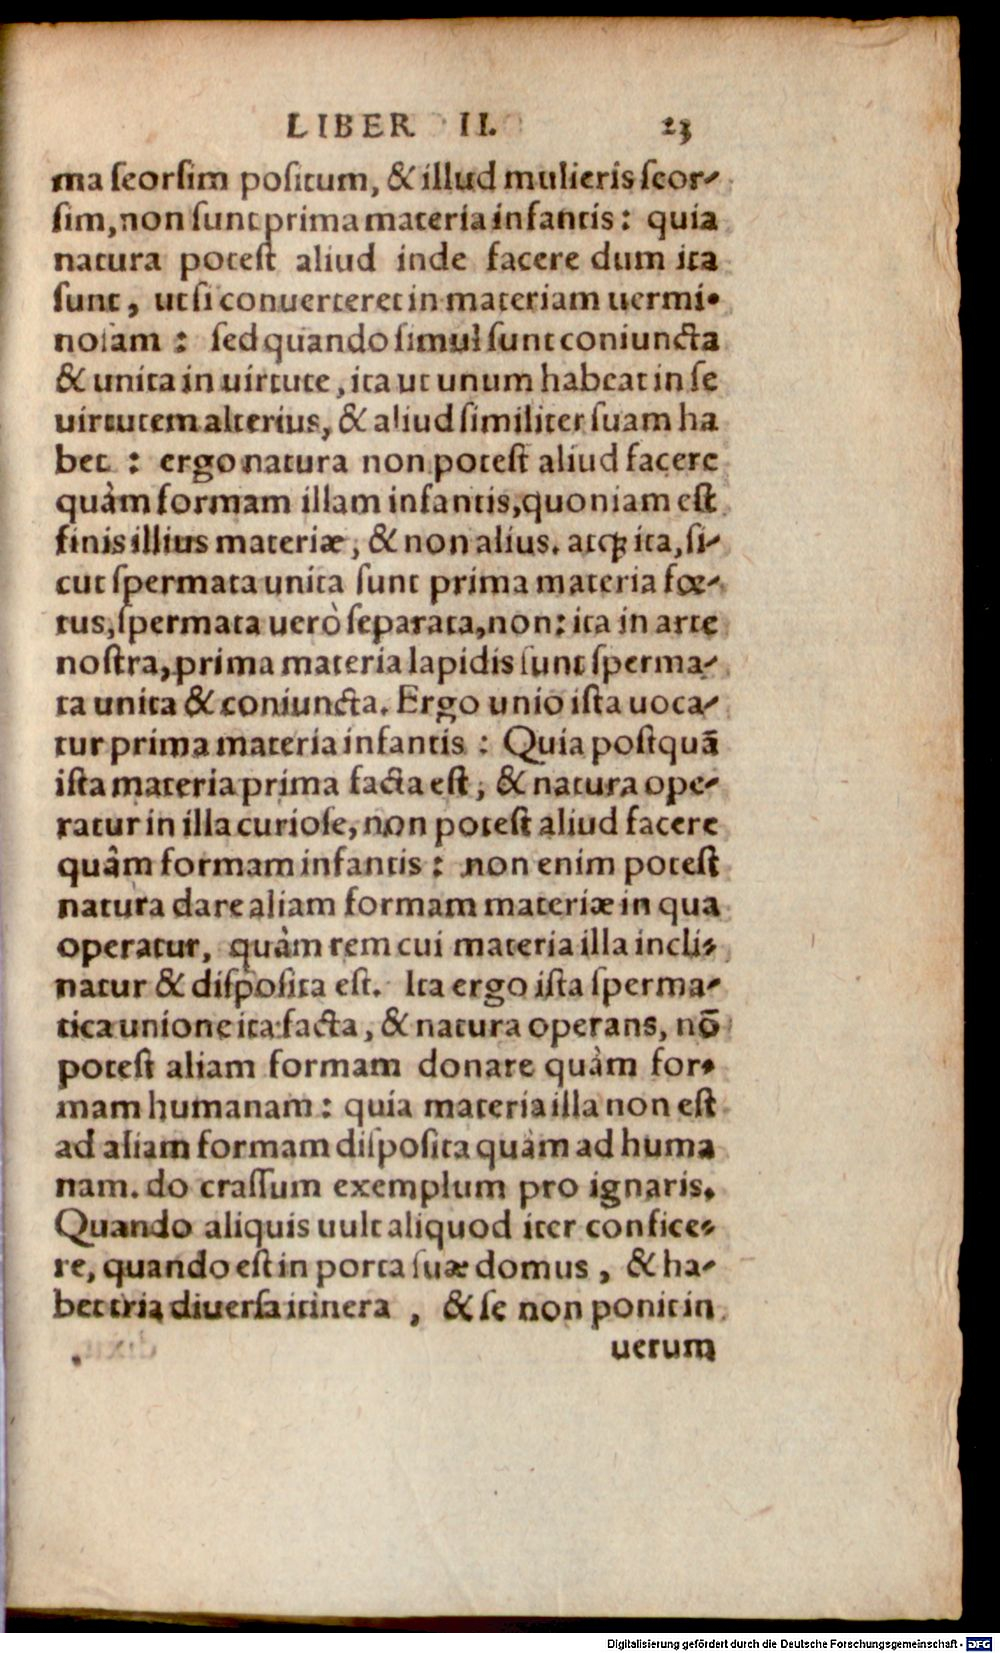 LIBER II. 23
ma seorsim positum, & illud mulieris seor-
sim, non sunt prima materia infantis: quia
natura potest aliud inde facere dum ita
sunt, ut si conuerteret in materiam uermi-
nosam: sed quando simul sunt coniuncta
& unita in uirtute, ita ut unum habeat in se
uirtutem alterius, & aliud similiter suam ha
bet: ergo natura non potest aliud facere
quàm formam illam infantis, quoniam est
finis illius materiæ, & non alius. atq́ ita, si-
cut spermata unita sunt prima materia fœ-
tus, spermata uerò separata, non: ita in arte
nostra, prima materia lapidis sunt sperma-
ta unita & coniuncta. Ergo unio ista uoca-
tur prima materia infantis: Quia postquã
ista materia prima facta est, & natura ope-
ratur in illa curiose, non potest aliud facere
quâm formam infantis: non enim potest
natura dare aliam formam materiæ in qua
operatur, quàm rem cui materia illa incli-
natur & disposita est. Ita ergo ista sperma-
tica unione ita facta, & natura operans, nõ
potest aliam formam donare quàm for-
mam humanam: quia materia illa non est
ad aliam formam disposita quàm ad huma
nam. do crassum exemplum pro ignaris.
Quando aliquis uult aliquod iter confice-
re, quando est in porta suæ domus, & ha-
bet tria diuersa itinera, & se non ponit in
uerum
Digitalisierung gefördert durch die Deutsche Forschungsgemeinschaft - DFG